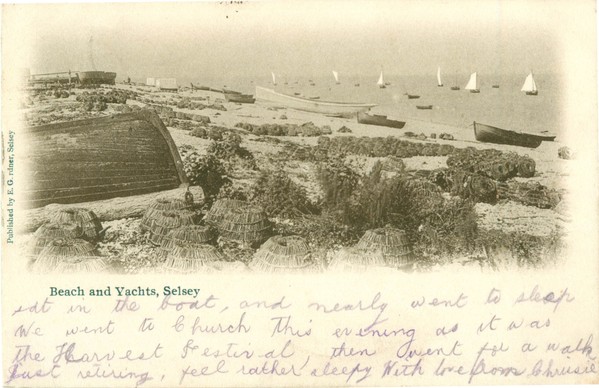 Published by E. Gardner, Selsey
Beach and Yachts, Selsey
sat in the boat, and nearly went to sleep
We went to Church this evening as it was
the Harvest Festival, then went for a walk
Just retiring, feel rather sleepy With love from Chrissie